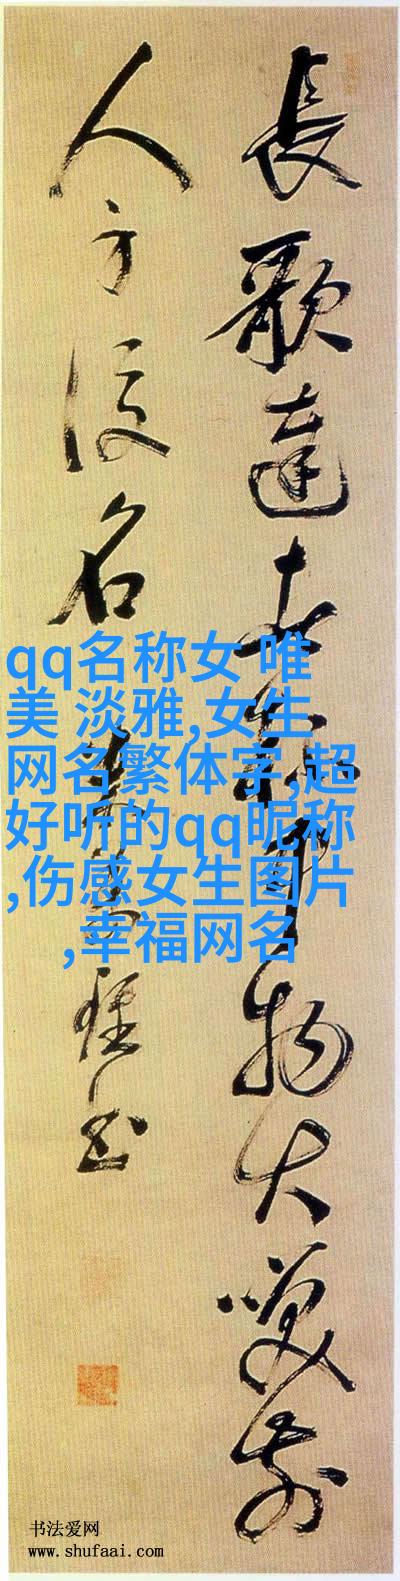 長歌達士杯中物大笑前
人身後名
書
qq名称女 唯
美 淡雅,女生
网名繁体字,超
好听的qq昵称
,伤感女生图片
,幸福网名
书法爱网
www.shufaai.com